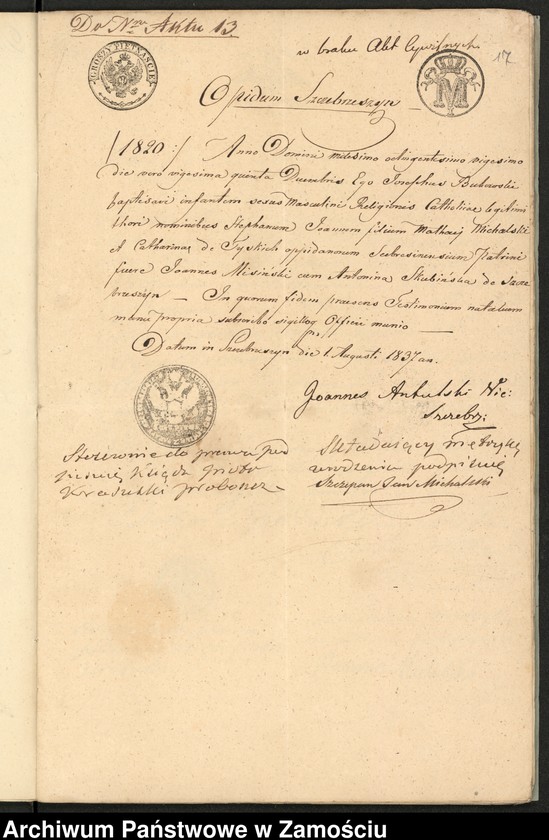 Do Nru Aktu 13.
w braku Akt Cywilnych
17
GROSZY PIETNAŚCIE
M
Opidum Szczebrzeszyn
/1820:/ Anno Domini milesimo octingentesimo vigesimo
die vero vigesima quinta Decembris Ego Josephus Bukowski
baptisavi infantem sexus Masculini Religionis Catholicae legitimi
thori nominibus Stephanum Joannem filium Mathaej Michalski
et Catharinae de Tyskich oppidanorum Scebresinensium Patrini
fuere Joannes Misiński cum Antonina Skubińska de Szcze
brzeszyn — In quorum fidem praesens Testimonium natalium
manu propria subscribo sigilloq Officii munio —
Datum in Szczebrzeszyn die 1. Augusti 1837 an.
Joannes Antulski Vic:
Szczebrz:
Stosownie do prawa pod
pisuję Ksiądz
Krasulski proboszcz
Składający metrykę
urodzenia podpisuję
Szczepan Jan Michalski
Archiwum Państwowe w Zamościu